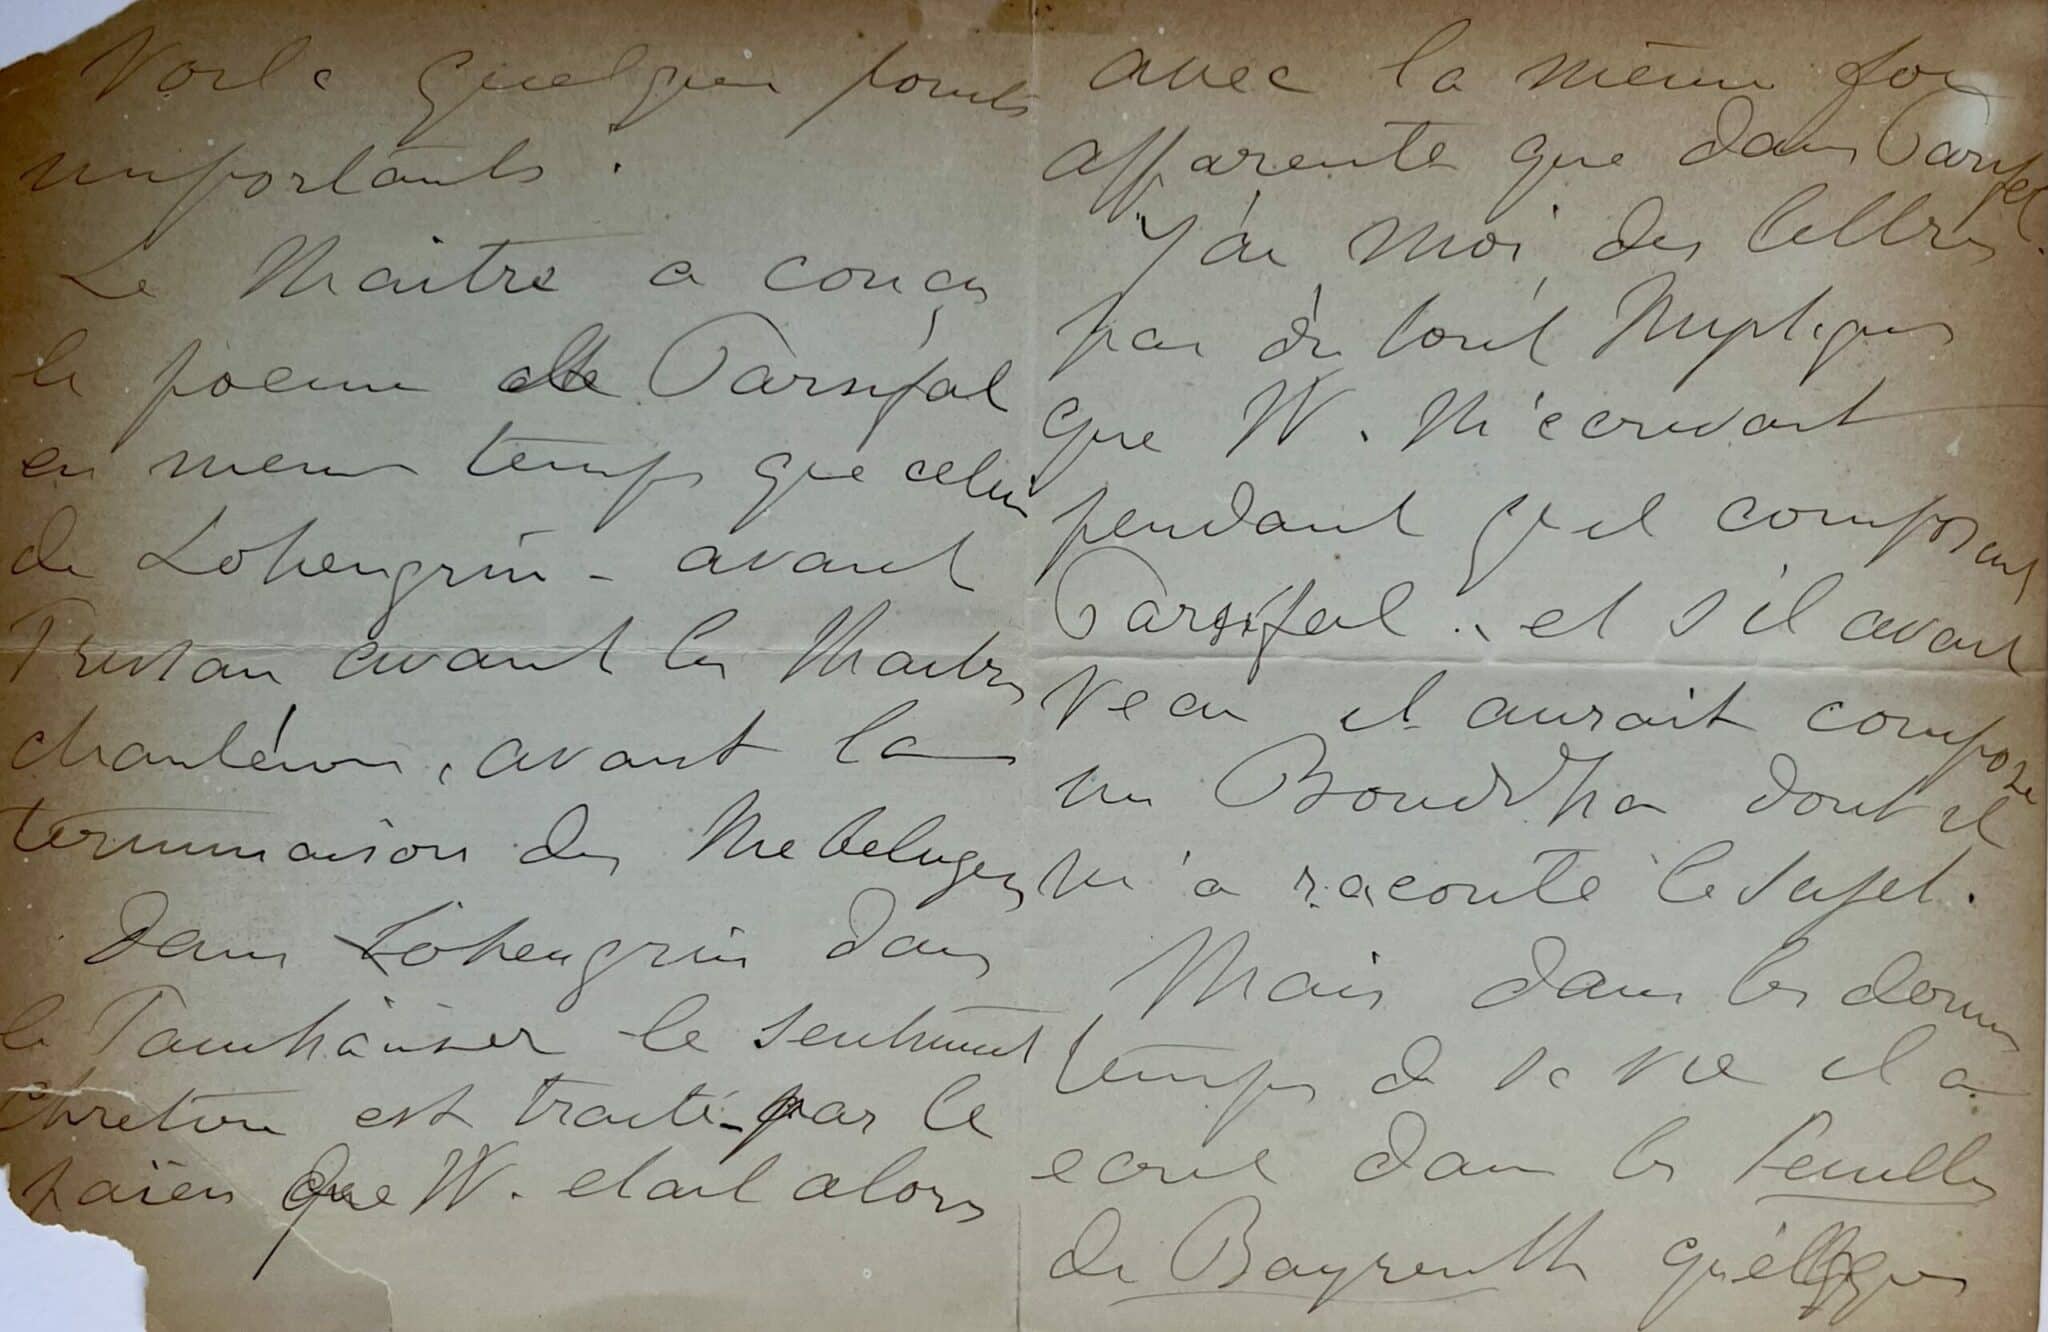 Voila quelques points
importants :
Le Maitre a conçu
le poeme de Parsifal
en meme temps que celui
de Lohengrin - avant
Tristan avant les Maitres
chanteurs, avant la
terminaison des Niebelugen
Dans Lohengrin dans
le Tannhäuser le sentiment
chretien est traité par le
païen que W. etait alors
avec la même foi
apparente que dans Parsifal.
J'ai moi, des lettres
pas du tout Mystiques
que W. M'ecrivait
pendant qu'il composait
Parsifal .. et s'il avait
vecu il aurait composé
un Bouddha dont il
m'a raconté le sujet.
Mais dans les derniers
temps de sa vie il a
ecrit dans les Feuilles
de Bayreuth quelques